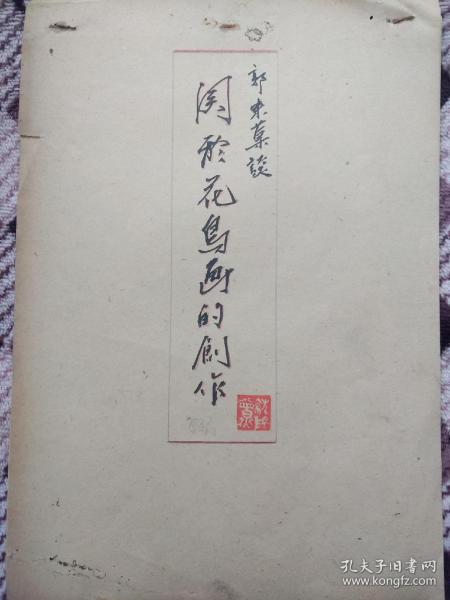 郭味蕖談
関於花鳥画的創作
孔夫子旧书网
www.kongfz.com